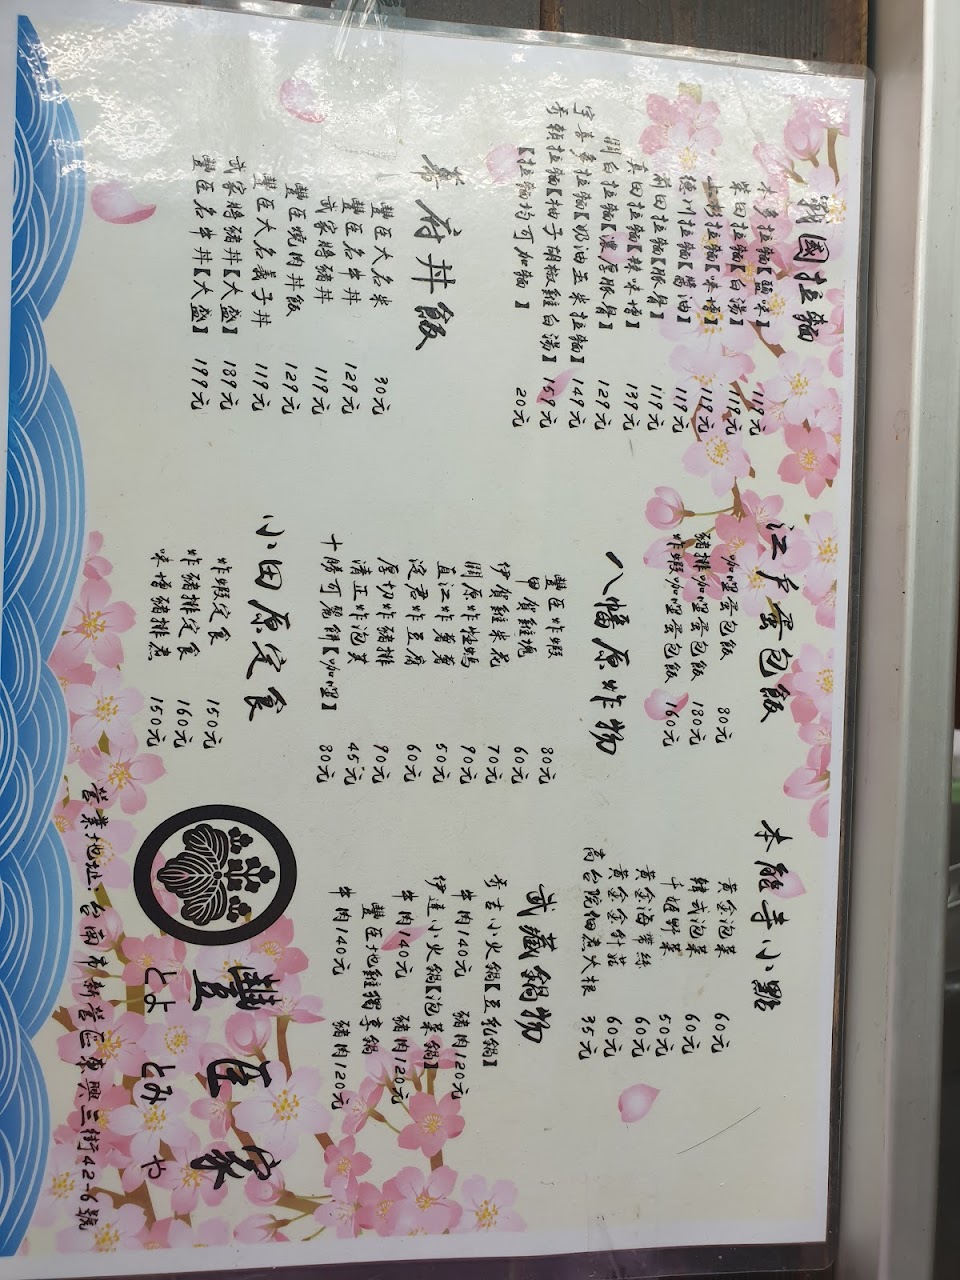 戰國拉麵
本多拉麵【鹽味】 119元
柴田拉麵【白湯】 119元
上杉拉麵【味增】 119元
德川拉麵【醬油】 119元
前田拉麵【豚骨】 119元
真田拉麵【辣味增】 139元
關白拉麵【濃厚豚骨】 129元
宇喜多拉麵【奶油玉米拉麵】 149元
秀賴拉麵【柚子胡椒雞白湯】 159元
【拉麵均可加麵】 20元
幕府丼飯
豐臣大名米 30元
豐臣名牛丼 129元
武家將豬丼 119元
豐臣燒肉丼飯 129元
豐臣大名養子丼 119元
武家將豬丼【大盛】 189元
豐臣名牛丼【大盛】 199元
江戶蛋包飯
咖哩蛋包飯 80元
豬排咖哩蛋包飯 180元
炸蝦咖哩蛋包飯 160元
八幡原炸物
豐臣炸蝦 80元
甲賀雞塊 60元
伊賀雞米花 70元
關原炸牡蠣 90元
直江炸薯薯 50元
淀君炸豆腐 60元
厚切炸豬排 90元
清正炸泡芙 45元
十勝可麗餅【咖哩】 80元
小田原定食
炸蝦定食 150元
炸豬排定食 160元
味增豬排煮 150元
本能寺小點
黃金泡菜 60元
韓式泡菜 60元
千姬野菜 50元
黃金海帶絲 60元
黃金金針菇 60元
高台院佃煮大根 35元
武藏鍋物
秀吉小火鍋【豆乳鍋】
牛肉140元 豬肉120元
伊達小火鍋【泡菜鍋】
牛肉140元 豬肉120元
豐臣地雞獨享鍋
牛肉140元 豬肉120元
豐臣家
とよ とみ や
營業地址:台南市新營區東興三街42-6號